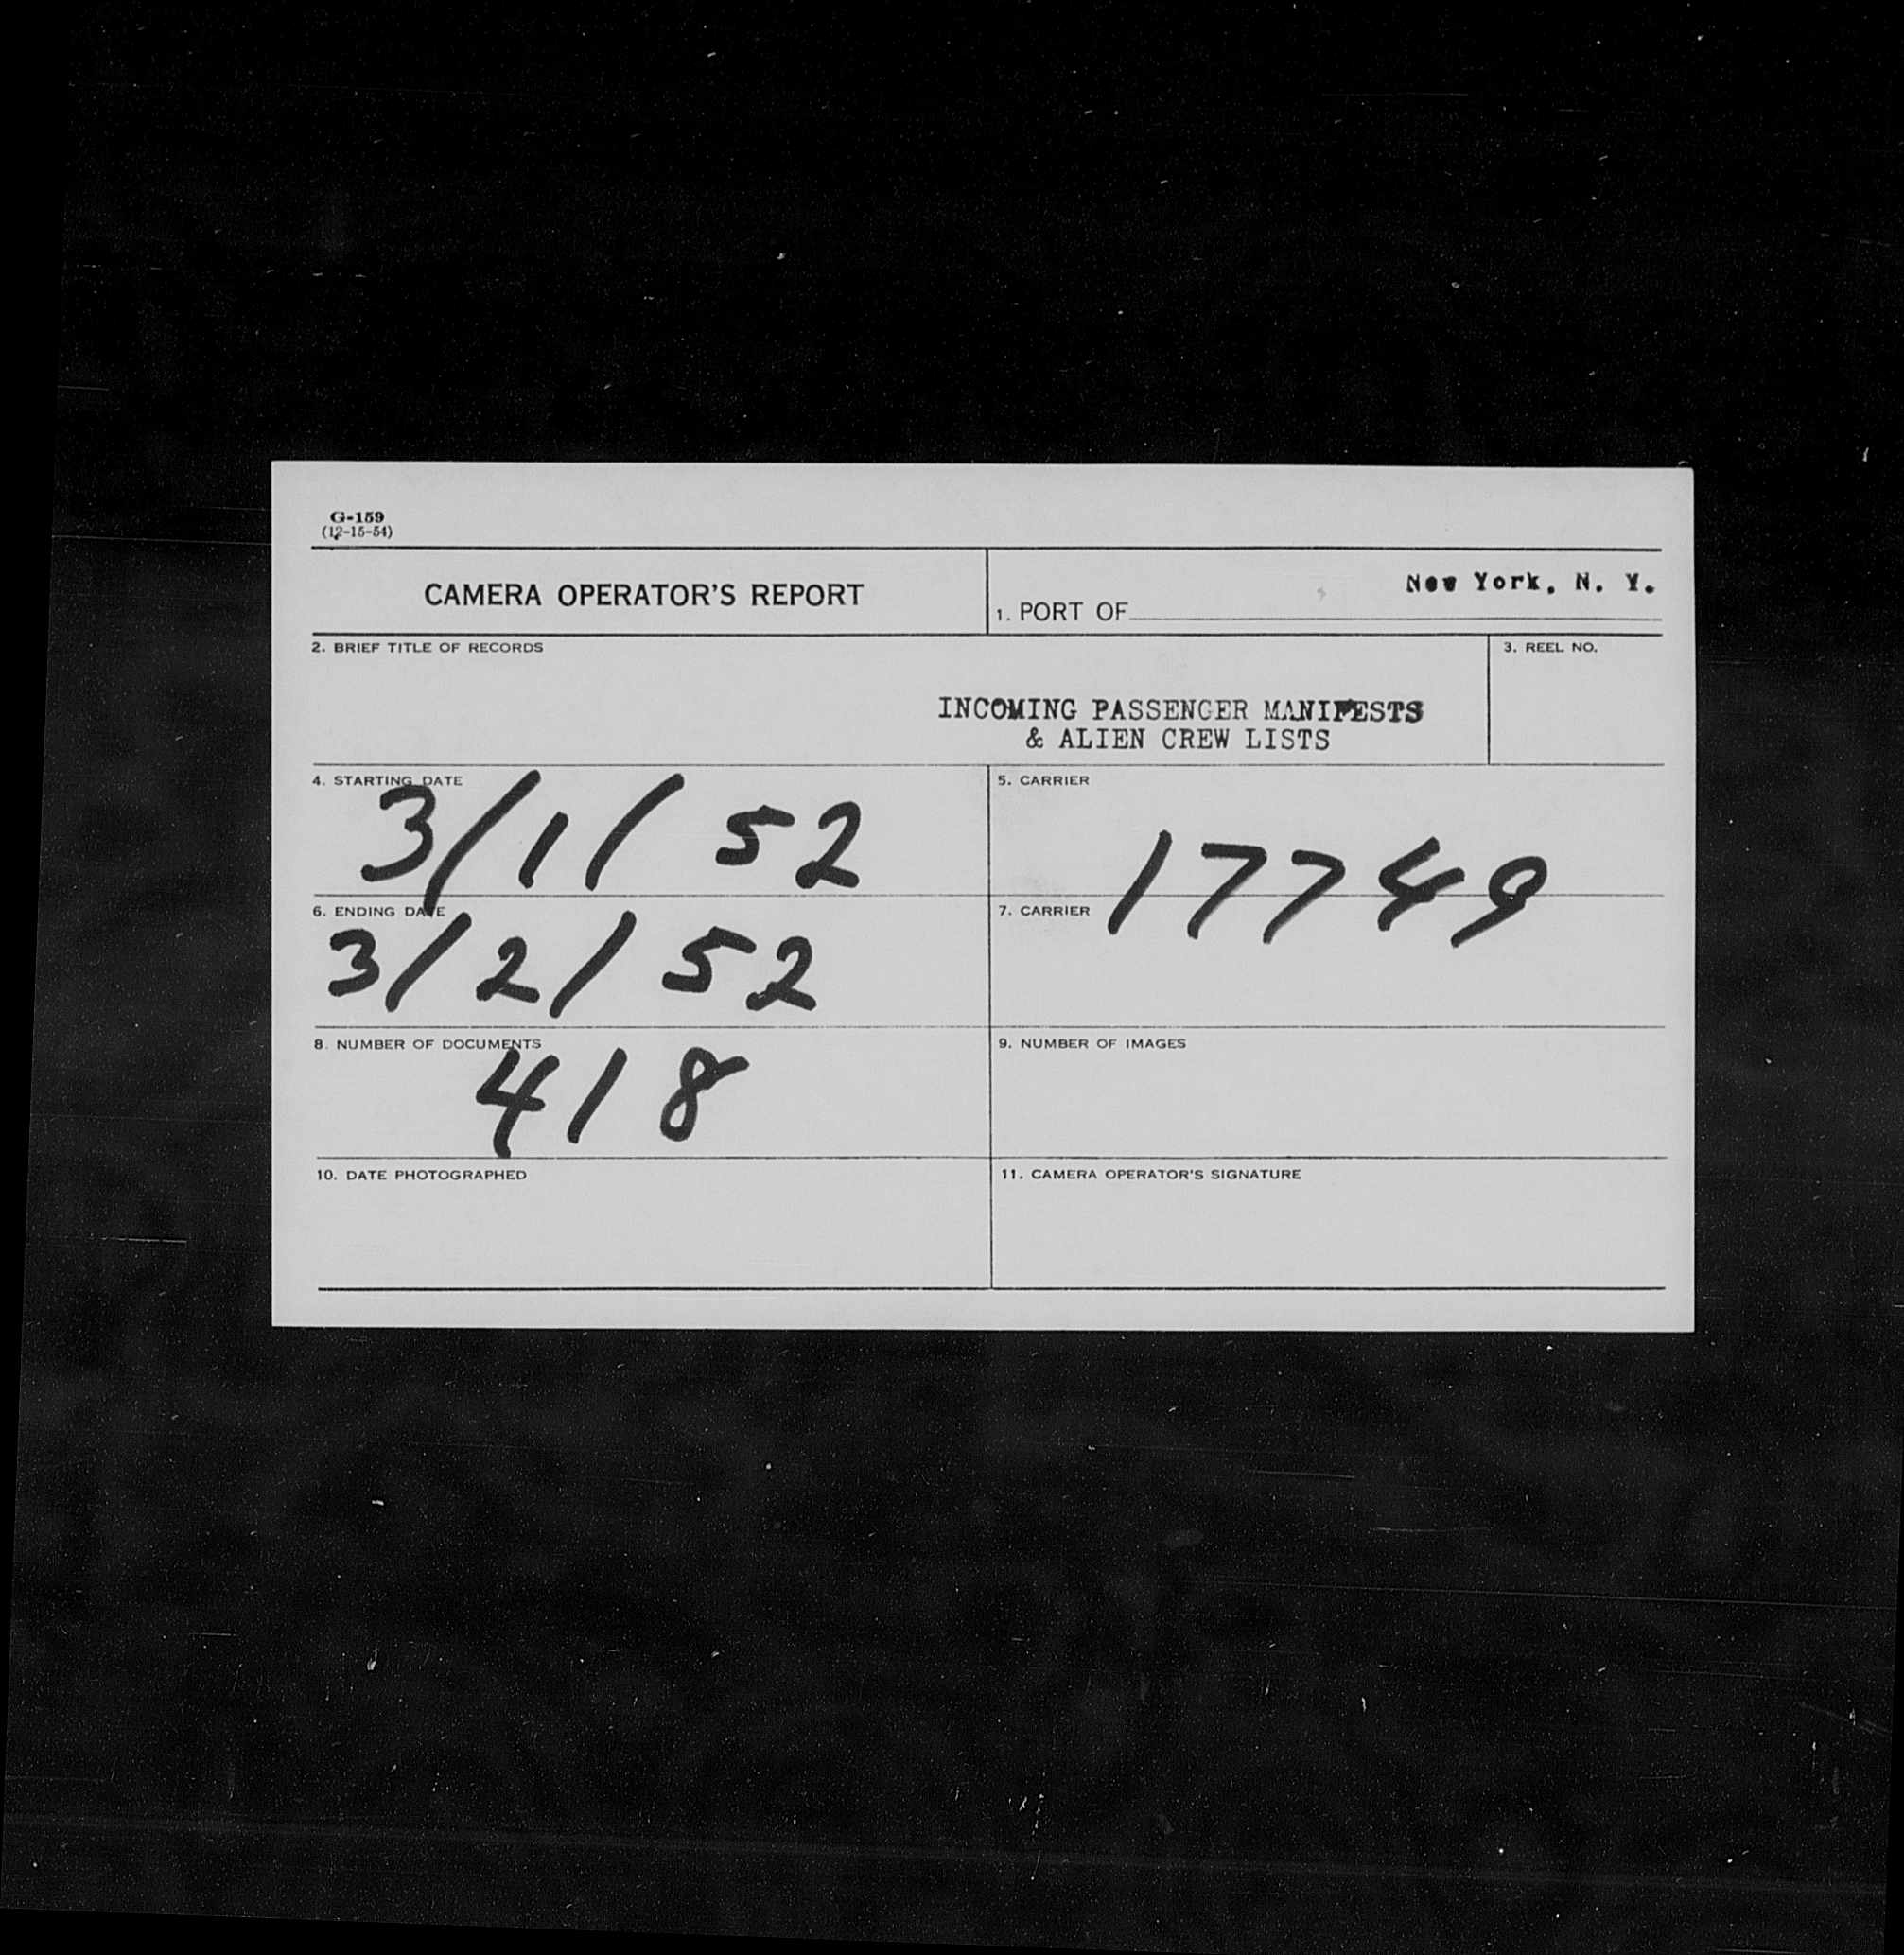 G-159
(12-15-54)
CAMERA OPERATOR'S REPORT
1. PORT OF New York, N. Y.
2. BRIEF TITLE OF RECORDS
3. REEL NO.
INCOMING PASSENGER MANIFESTS
& ALIEN CREW LISTS
4. STARTING DATE
3/1/52
5. CARRIER
17749
6. ENDING DATE
3/2/52
7. CARRIER
8. NUMBER OF DOCUMENTS
418
9. NUMBER OF IMAGES
10. DATE PHOTOGRAPHED
11. CAMERA OPERATOR'S SIGNATURE